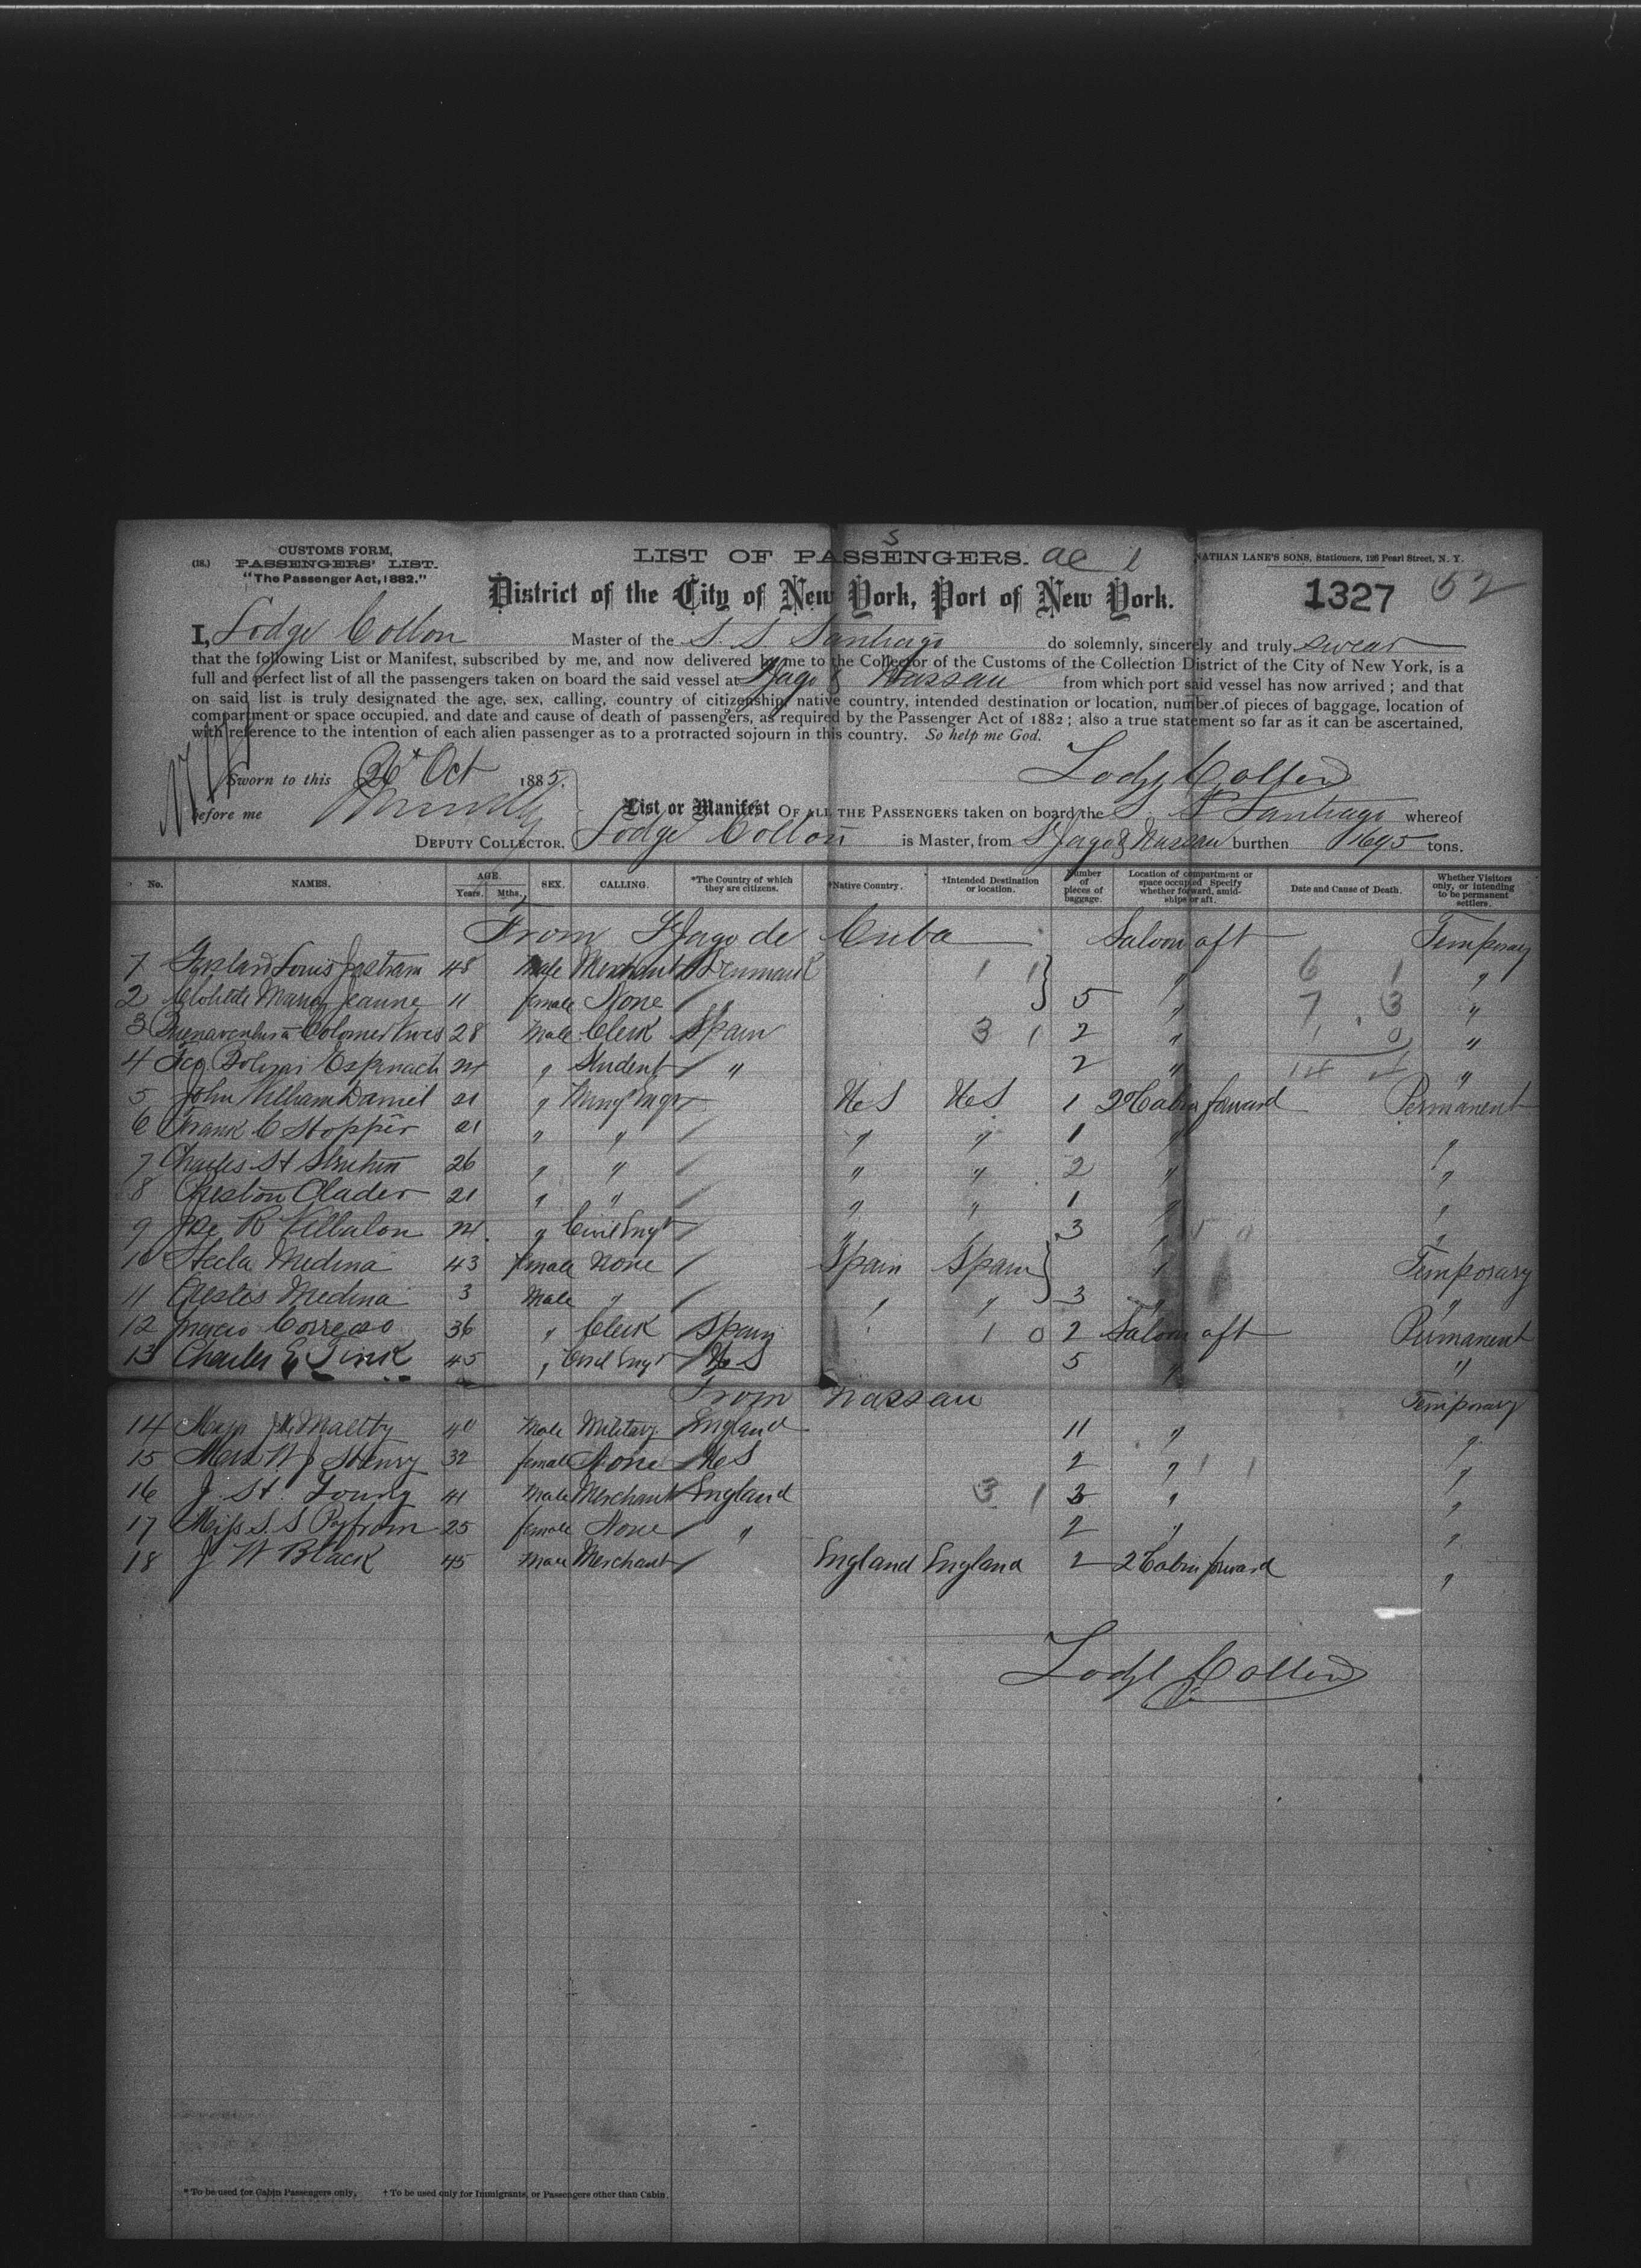 CUSTOMS FORM,
(18.) PASSENGERS' LIST.
"The Passenger Act, 1882."
LIST OF PASSENGERS.
NATHAN LANE'S SONS, Stationers, 126 Pearl Street, N. Y.
District of the City of New York, Port of New York.
1327
I, Lodge Colton Master of the S. S. Santiago do solemnly, sincerely and truly swear
that the following List or Manifest, subscribed by me, and now delivered by me to the Collector of the Customs of the Collection District of the City of New York, is a
full and perfect list of all the passengers taken on board the said vessel at St Jago & Nassau from which port said vessel has now arrived; and that
on said list is truly designated the age, sex, calling, country of citizenship, native country, intended destination or location, number of pieces of baggage, location of
compartment or space occupied, and date and cause of death of passengers, as required by the Passenger Act of 1882; also a true statement so far as it can be ascertained,
with reference to the intention of each alien passenger as to a protracted sojourn in this country. So help me God.
Sworn to this 26th Oct 1885. Lodge Colton
before me
List or Manifest OF ALL THE PASSENGERS taken on board the S. S. Santiago whereof
DEPUTY COLLECTOR. Lodge Colton is Master, from St Jago & Nassau burthen 1695 tons.
No. NAMES. AGE. Years. Mths. SEX. CALLING. *The Country of which they are citizens. †Native Country. †Intended Destination or location. Number of pieces of baggage. Location of compartment or space occupied Specify whether forward, amidships or aft. Date and Cause of Death. Whether Visitors only, or intending to be permanent settlers.
From St Jago de Cuba Saloon aft Temporary
1 Louis Jastram 48 Male Merchant Denmark 1 1 " 6 1 "
2 Clotilde Maria Jeanne 11 female None 5 " 7 3 "
3 Buenaventura Colomer Vives 28 Male Clerk Spain 3 1 2 " 1 0 "
4 Espinach 24 " Student " 2 " 14 4 "
5 John William Daniel 21 " U S U S 1 2d Cabin forward Permanent
6 Frank C Stopper 21 " " " " 1 " "
7 Charles 26 " " " " 2 " "
8 Preston 21 " " " " 1 " "
9 R Villalon 24 " Civil Engr " " 3 " "
10 Medina 43 female None Spain Spain " Temporary
11 Medina 3 Male " " " 3 " "
12 36 " Clerk Spain 1 0 2 Saloon aft Permanent
13 Charles 45 " Civil Engr U S 5 " "
From Nassau Temporary
14 Maltby 40 Male Military England 11 " "
15 32 female None U S 2 " 1 1 "
16 J. Young 41 Male Merchant England 3 1 3 " "
17 Miss S. S 25 female None " 2 " "
18 J W Black 45 Male Merchant England England 2 2 Cabin forward "
Lodge Colton
* To be used for Cabin Passengers only. † To be used only for Immigrants, or Passengers other than Cabin.